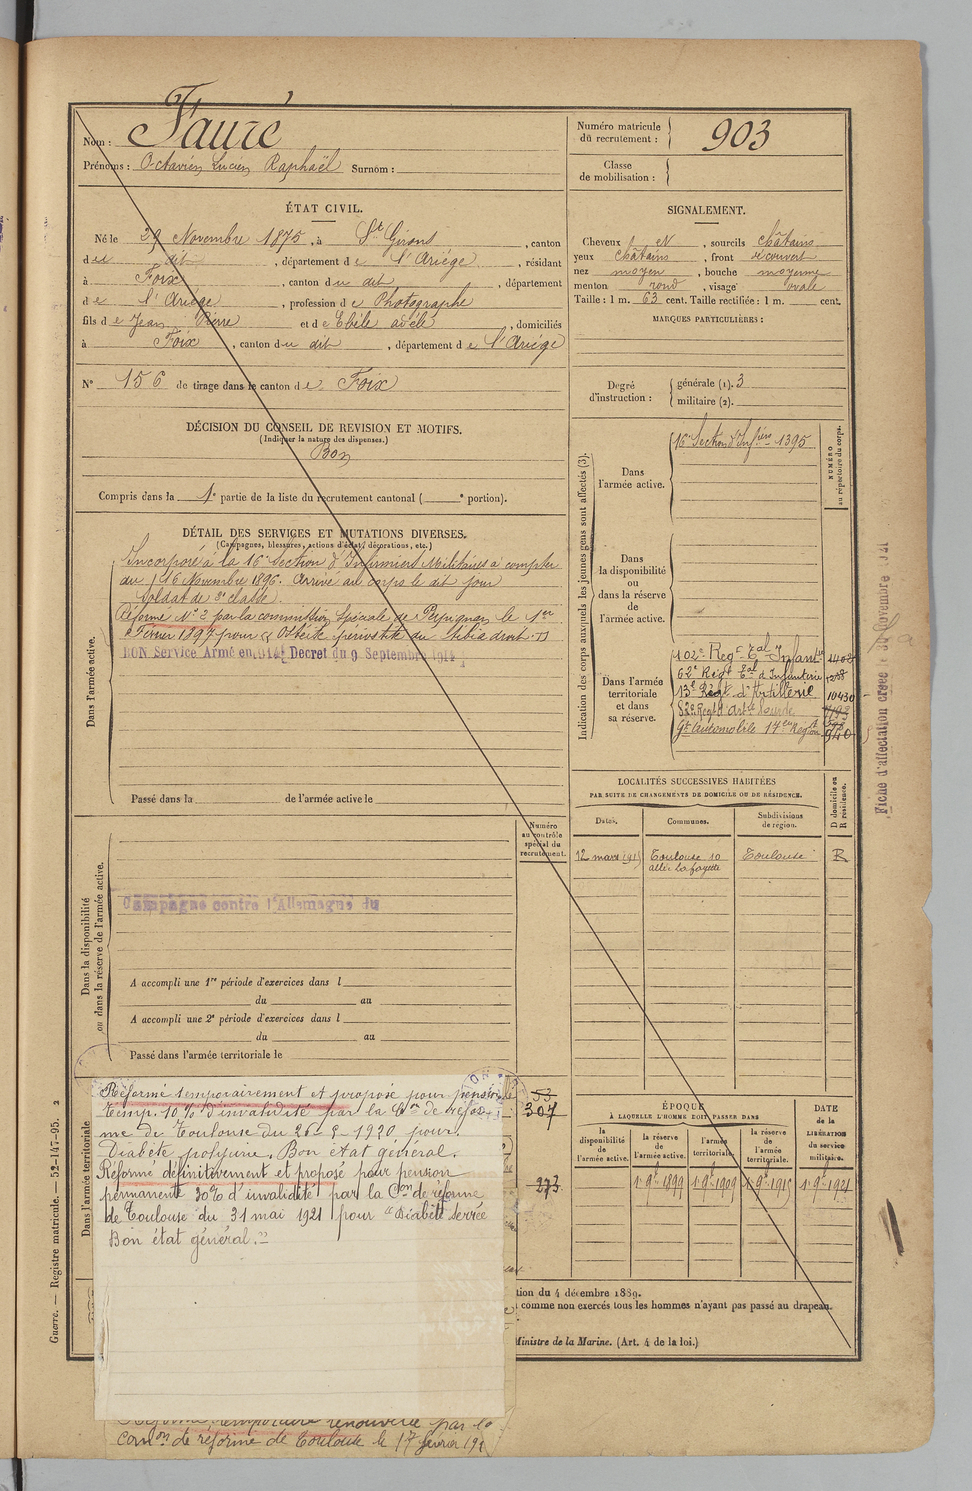 Nom : Fauré
Prénoms : Octavien Lucien Raphaël Surnom :
Numéro matricule du recrutement : 903
Classe de mobilisation :
ÉTAT CIVIL.
Né le 29 Novembre 1875, à St Girons, canton
du dit, département de l'Ariége, résidant
à Foix, canton du dit, département
de l'Ariége, profession de Photographe
fils de Jean Pierre et de Ebéle adèle, domiciliés
à Foix, canton du dit, département de l'Ariége
N° 156 de tirage dans le canton de Foix
SIGNALEMENT.
Cheveux N, sourcils châtains
yeux châtains, front découvert
nez moyen, bouche moyenne
menton rond, visage ovale
Taille : 1 m. 63 cent. Taille rectifiée : 1 m. cent.
MARQUES PARTICULIÈRES :
Degré d'instruction : générale (1). 3
militaire (2).
DÉCISION DU CONSEIL DE REVISION ET MOTIFS.
(Indiquer la nature des dispenses.)
Bon
Compris dans la 1e partie de la liste du recrutement cantonal ( e portion).
DÉTAIL DES SERVICES ET MUTATIONS DIVERSES.
(Campagnes, blessures, actions d'éclat, décorations, etc.)
Dans l'armée active.
Incorporé à la 16e Section d'Infirmiers Militaires à compter
du 16 Novembre 1896. Arrivé au corps le dit jour
Soldat de 2e classe.
Réformé N° 2 par la commission Spéciale de Perpignan le 1er
Février 1897 pour Ostéite périostite du tibia droit
BON Service Armé en 1914 Décret du 9 Septembre 1914
Passé dans la de l'armée active le
Indication des corps auxquels les jeunes gens sont affectés (3).
NUMÉRO au répertoire du corps.
Dans l'armée active.
16e Section d'Infières 1395
Dans la disponibilité ou dans la réserve de l'armée active.
Dans l'armée territoriale et dans sa réserve.
102e Regt Eal Infantie 1402
62e Régt Eal d'Infanterie 1288
13e Régt d'Artillerie 10430
82e Regt d'Artie Lourde
Gt automobile 17eme Région 940
Fiche d'affectation créée le Novembre
LOCALITÉS SUCCESSIVES HABITÉES
PAR SUITE DE CHANGEMENTS DE DOMICILE OU DE RÉSIDENCE.
Dates. Communes. Subdivisions de région. D domicile ou R résidence.
12 mars 1915 Toulouse 10 allée Lafayette Toulouse R
Numéro au contrôle spécial du recrutement.
Dans la disponibilité ou dans la réserve de l'armée active.
Campagne contre l'Allemagne du
A accompli une 1re période d'exercices dans l
du au
A accompli une 2e période d'exercices dans l
du au
Passé dans l'armée territoriale le
Dans l'armée territoriale
Réformé temporairement et proposé pour pension
temp. 10% d'invalidité par la Con de réfor-
me de Toulouse du 26-5-1920 pour
Diabète polyurie. Bon état général.
Réformé définitivement et proposé pour pension
permanente 30% d'invalidité par la Con de réforme
de Toulouse du 31 mai 1921 pour "Diabète sucrée
Bon état général."
53
307
373
ÉPOQUE
À LAQUELLE L'HOMME DOIT PASSER DANS
DATE de la LIBÉRATION du service militaire.
la disponibilité de l'armée active. la réserve de l'armée active. l'armée territoriale. la réserve de l'armée territoriale.
1 9bre 1899 1 9bre 1909 1 9bre 1915 1 9bre 1921
tion du 4 décembre 1889.
comme non exercés tous les hommes n'ayant pas passé au drapeau.
Ministre de la Marine. (Art. 4 de la loi.)
Réforme temporaire renouvelée par la
Comon de réforme de Toulouse le 17 février
Guerre. — Registre matricule. — 52-147-95. 2